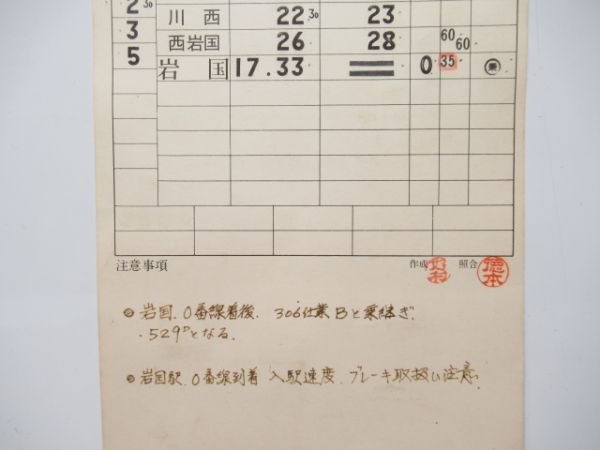 2 30 川西 22 30 23
3 西岩国 26 28 60 60
5 岩国 17.33 0 35 乗
注意事項 作成 照合 徳本
岩国.0番線着後. 306仕業Bと乗継ぎ.
.529Dとなる.
岩国駅.0番線到着 入駅速度.ブレーキ取扱い注意.